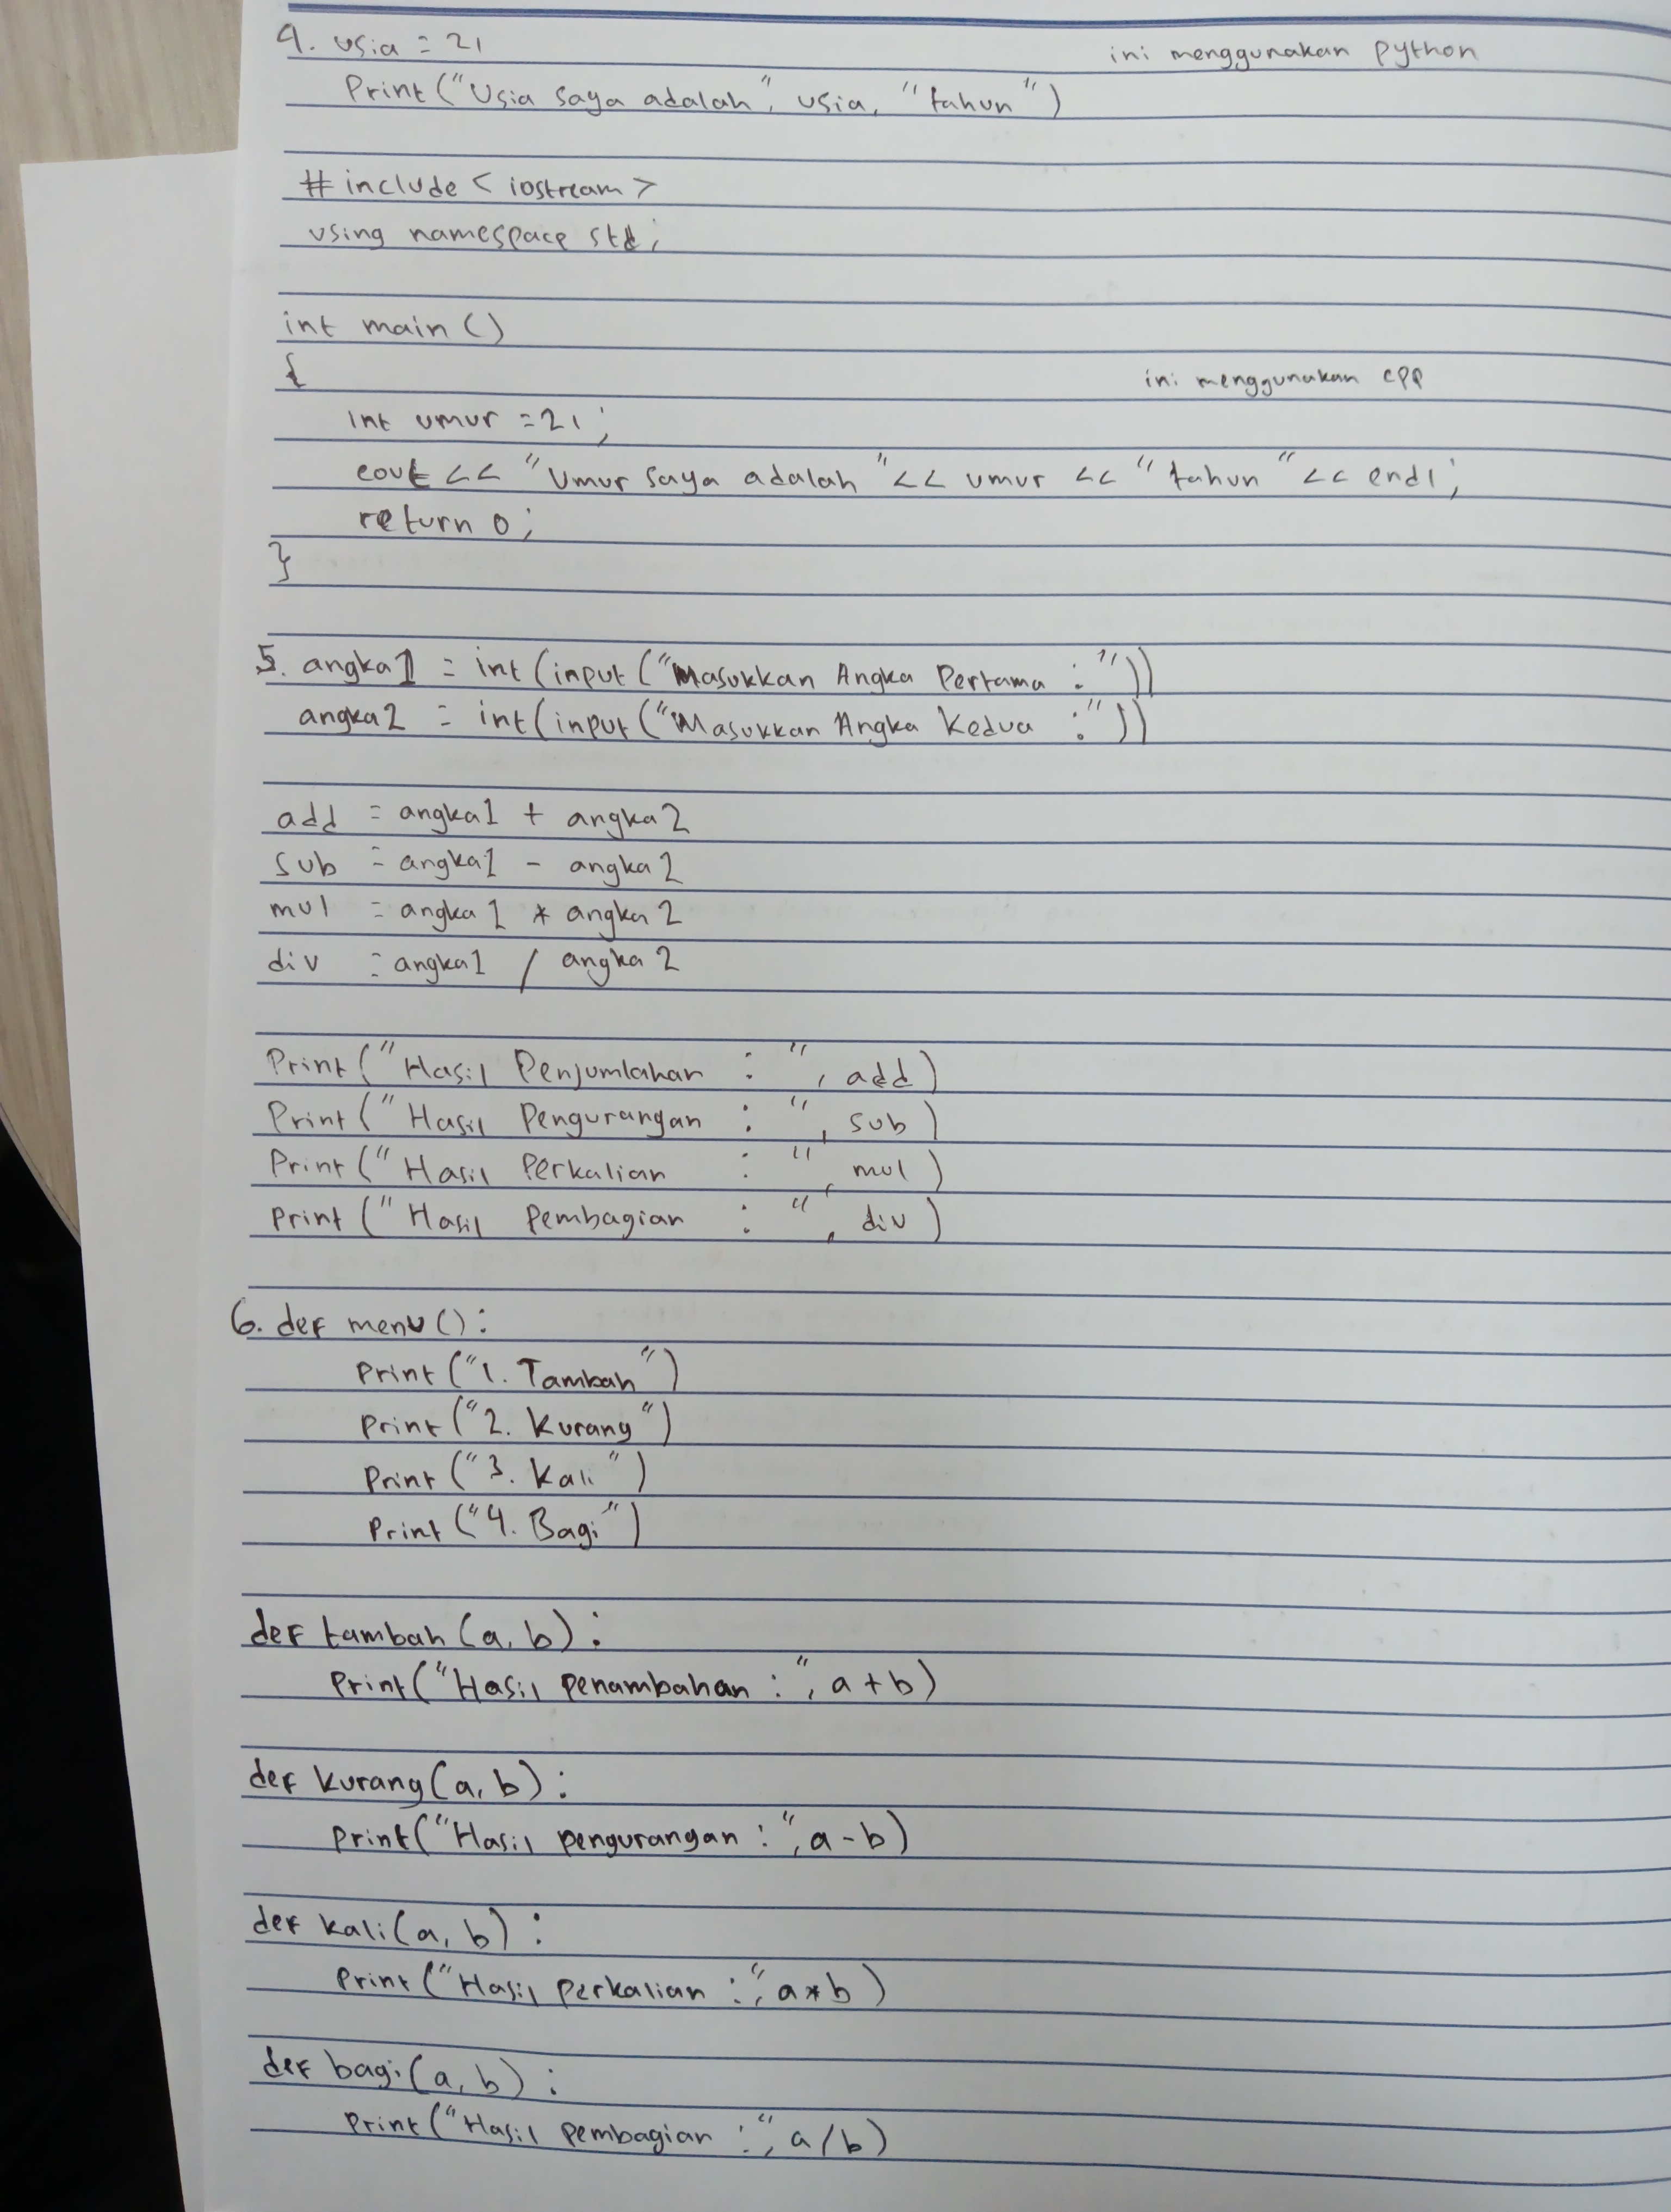 4. usia = 21
ini menggunakan python
Print("Usia saya adalah", usia, "tahun")
#include <iostream>
using namespace std;
int main ()
{
ini menggunakan cpp
int umur = 21;
cout << "Umur saya adalah " << umur << " tahun " << endl;
return 0;
}
5. angka1 = int(input("Masukkan Angka Pertama :"))
angka2 = int(input("Masukkan Angka Kedua :"))
add = angka1 + angka2
sub = angka1 - angka2
mul = angka1 * angka2
div = angka1 / angka2
Print("Hasil Penjumlahan : ", add)
Print("Hasil Pengurangan : ", sub)
Print("Hasil Perkalian : ", mul)
Print("Hasil Pembagian : ", div)
6. def menu():
Print("1. Tambah")
Print("2. Kurang")
Print("3. Kali")
Print("4. Bagi")
def tambah(a, b):
Print("Hasil penambahan :", a + b)
def kurang(a, b):
Print("Hasil pengurangan :", a - b)
def kali(a, b):
Print("Hasil perkalian :", a * b)
def bagi(a, b):
Print("Hasil pembagian :", a / b)